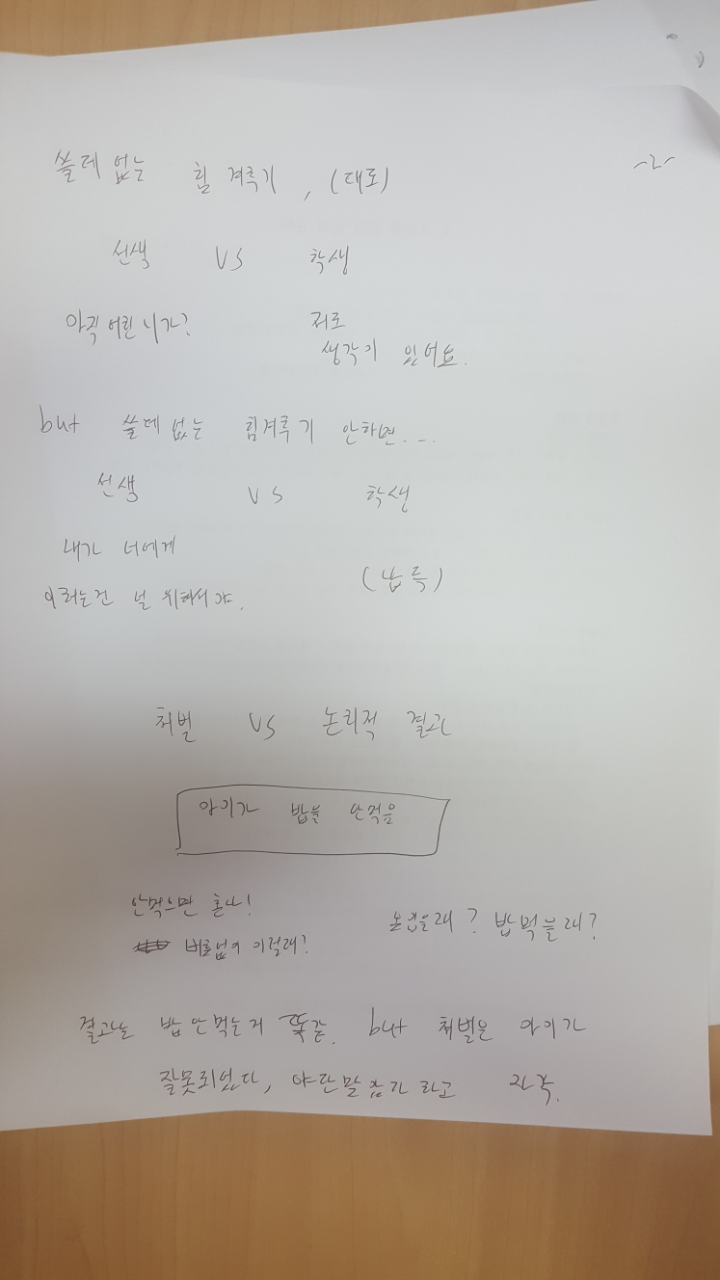 쓸데 없는 힘 겨루기, (대로)
-2-
선생 VS 학생
아직 어린 니가?
저도
생각이 있어요.
but 쓸데 없는 힘겨루기 안하면...
선생 VS 학생
내가 너에게
이러는건 널 위해서야.
(납득)
처벌 VS 논리적 결과
아이가 밥을 안먹음
안먹으면 혼나!
버릇없이 이럴래?
옷입을래? 밥먹을래?
결과는 밥 안먹는거 똑같. but 처벌은 아이가
잘못되었다, 야단맞춤가 라고 자각.